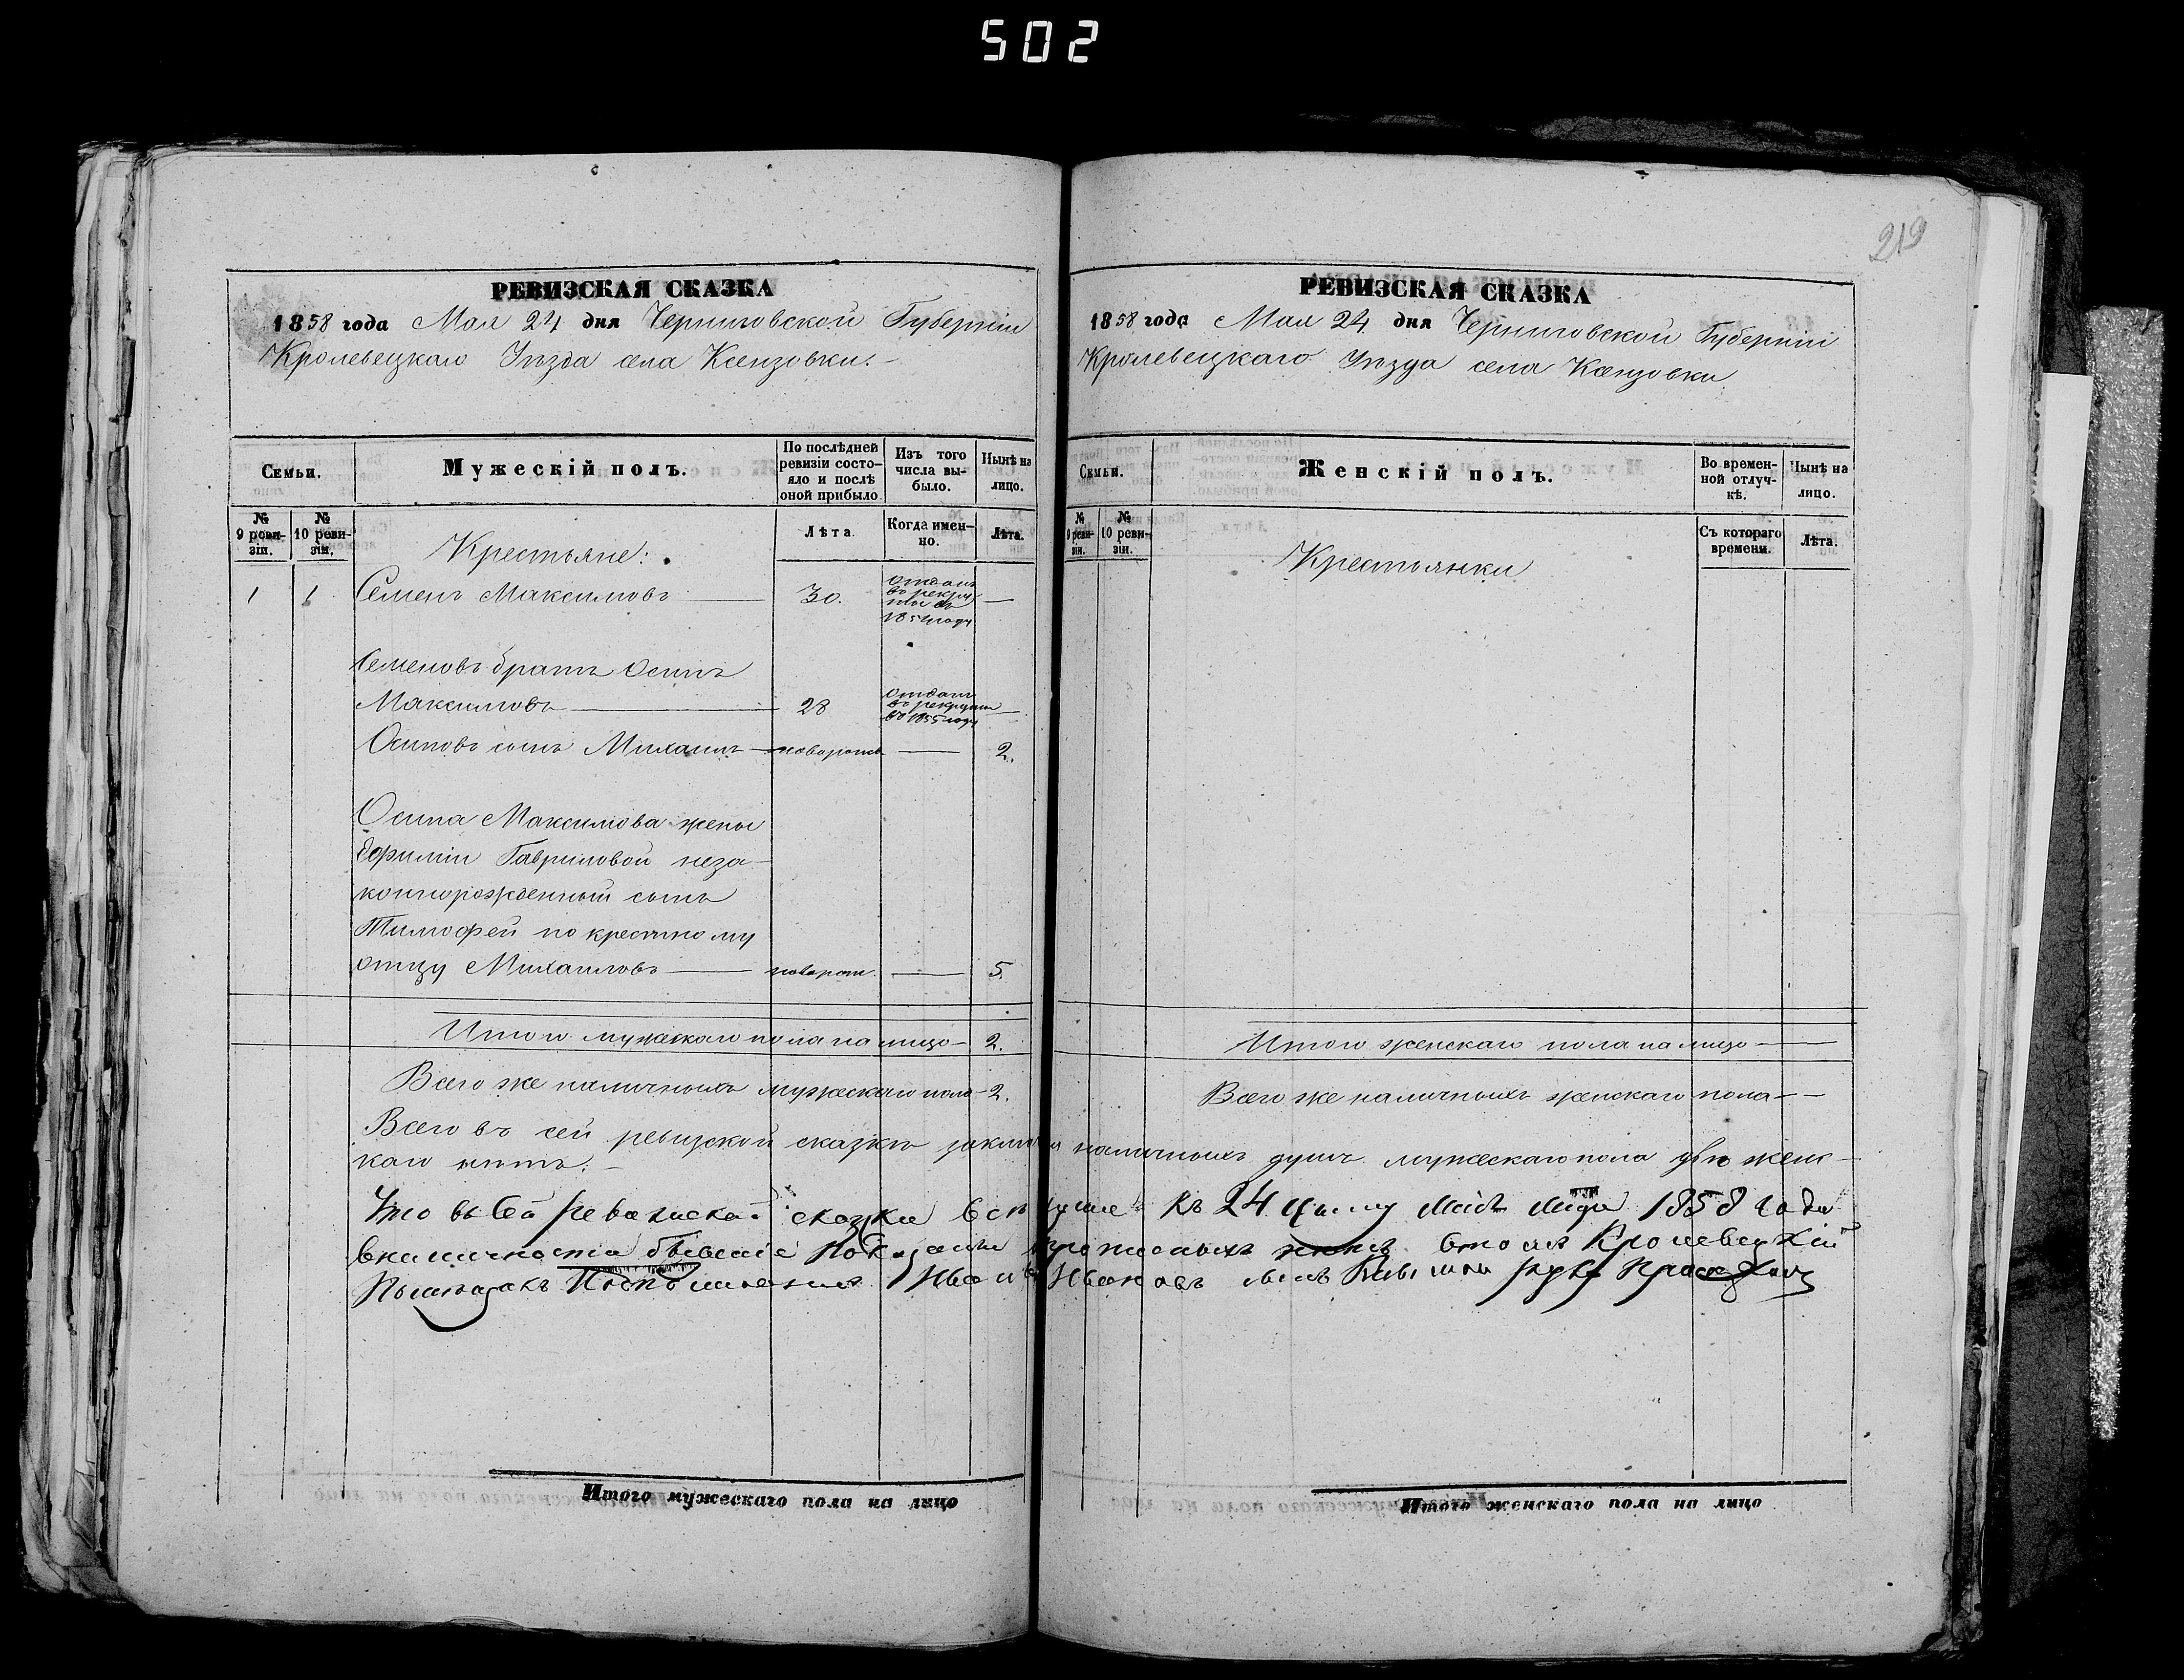 502
219
РЕВИЗСКАЯ СКАЗКА
1858 года Мая 24 дня Черниговской Губерніи
Кролевецкаго Уѣзда села Ксензовки.
Семьи.
Мужескій полъ.
По послѣдней ревизіи состояло и послѣ оной прибыло
Изъ того числа выбыло.
Нынѣ на лицо.
№ 9 ревизіи.
№ 10 ревизіи.
Лѣта.
Когда именно.
Лѣта.
Крестьяне:
1 1 Семенъ Максимовъ — 30. отданъ въ рекруты въ 1854 году —
Семеновъ братъ Осипъ
Максимовъ — 28 отданъ въ рекруты въ 1855 году —
Осиповъ сынъ Михаилъ — новорожд — 2.
Осипа Максимова жены
Гавриловой неза-
коннорожденный сынъ
Тимофей по крестному
отцу Михаиловъ — новорож. — 5.
Итого мужескаго пола на лицо — 2.
Всего же наличныхъ мужескаго пола — 2.
РЕВИЗСКАЯ СКАЗКА
1858 года Мая 24 дня Черниговской Губерніи
Кролевецкаго Уѣзда села Ксензовки
Семьи.
Женскій полъ.
Во временной отлучкѣ.
Нынѣ на лицо.
№ 9 ревизіи.
№ 10 ревизіи.
Съ котораго времени.
Лѣта.
Крестьянки
Итого женскаго пола на лицо —
Всего же наличныхъ женскаго пола —
Всего въ сей ревизской сказкѣ наличныхъ душъ мужескаго пола двѣ женс-
каго нѣтъ. —
Что въ сей ревизской сказки все къ 24 Мая 1858 года
показаны Кролевецкій
Иванъ Ивановъ сынъ руку
Итого мужескаго пола на лицо
Итого женскаго пола на лицо